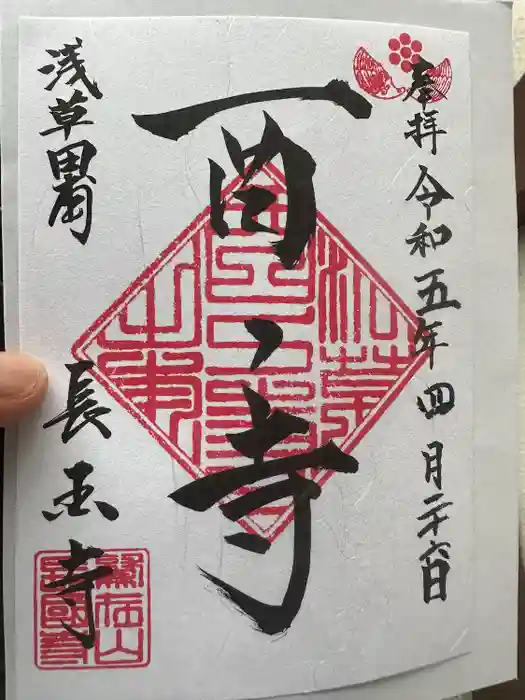 参拝 令和五年四月二十六日
酉之寺
浅草田圃
長国寺
鷲在山
長國寺